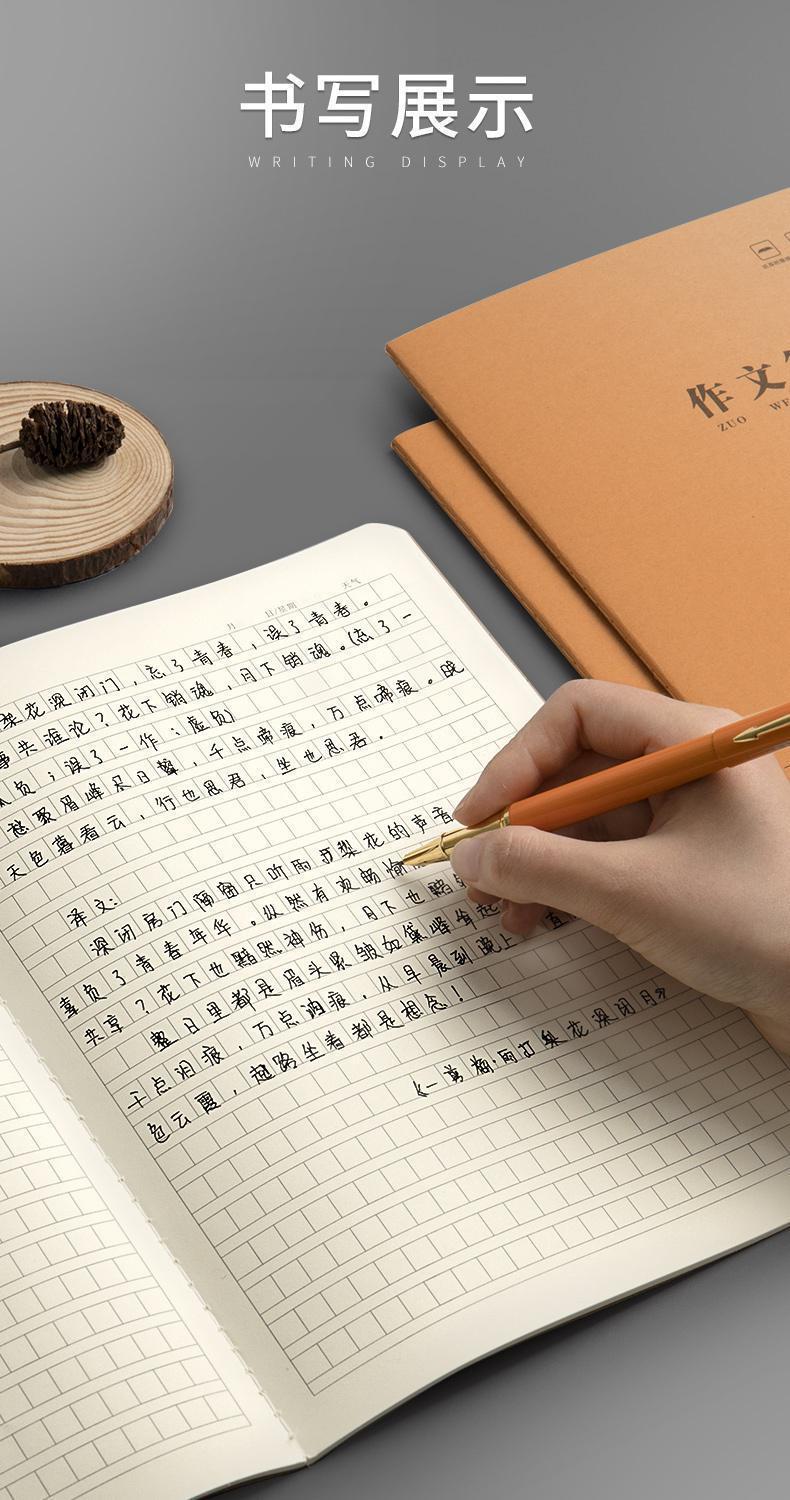 书写展示
WRITING DISPLAY
作文
ZUO WE
月 日/星期 天气
梨花深闭门，忘了青春，误了青春。
事共谁论？花下销魂，月下销魂。(忘了一
负；误了一作：虚负)
愁聚眉峰尽日颦，千点啼痕，万点啼痕。晓
天色暮看云，行也思君，坐也思君。
译文:
深闭房门隔窗只听雨打梨花的声音
辜负了青春年华。纵然有欢畅愉
共享？花下也黯然神伤，月下也黯
整日里都是眉头累皱如黛峰耸起
千点泪痕，万点泪痕，从早晨到晚上一直
色云霞，走路坐着都是想念！
《一剪梅·雨打梨花深闭月》